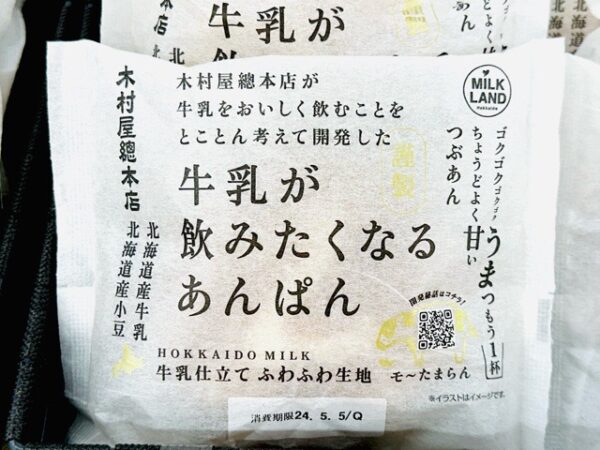 牛乳が
木村屋總本店
北海道産牛乳
北海道産小豆
木村屋總本店が
牛乳をおいしく飲むことを
とことん考えて開発した
謹製
牛乳が
飲みたくなる
あんぱん
MILK
LAND
Hokkaido
ゴクゴクゴクゴク
ちょうどよく甘い
つぶあん
うまっもう1杯
開発秘話はコチラ!
HOKKAIDO MILK
牛乳仕立て ふわふわ生地 モ〜たまらん
※イラストはイメージです。
消費期限24. 5. 5/Q